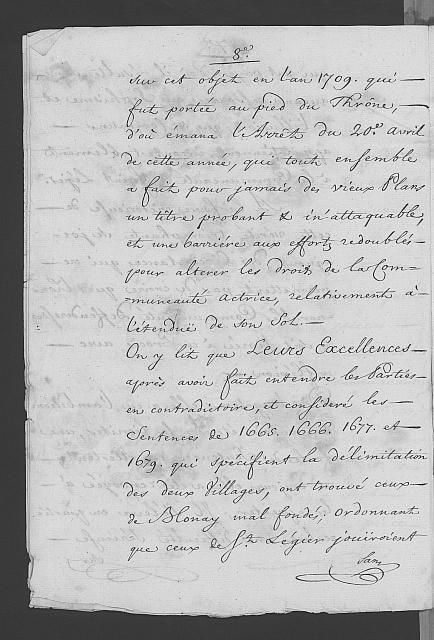 8.º
sur cet objet en l'an 1709. qui —
fut portée au pied du Thrône, —
d'où émana l'Arrêt du 20.º avril
de cette année, qui tout ensemble
a fait pour jamais des vieux Plans
un titre probant & in'attaquable,
et une barriére aux efforts redoublés —
pour alterer les droits de la Com=
=muneauté actrice, relativement à —
l'étenduë de son Sol. —
On y lit que Leurs Excellences —
après avoir fait entendre les Parties —
en contradictoire, et consideré les —
Sentences de 1665. 1666. 1677. et —
1679. qui spécifient la délimitation
des deux Villages, ont trouvé ceux —
de Blonay mal fondés; ordonnant
que ceux de St. Légier jouïroient
Sans